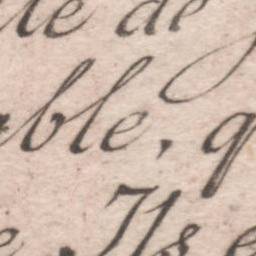 te de
ble, q
. Ils e